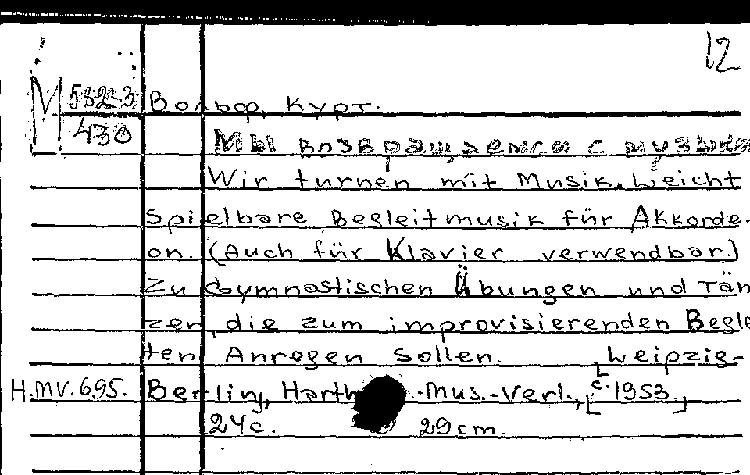 12
М 5823/430
Вольф, Курт.
Мы возвращаемся с музыкой
Wir turnen mit Musik. Leicht
spielbare Begleitmusik für Akkorde-
on. (Auch für Klavier verwendbar)
Zu Gymnastischen Übungen und Tän-
zen, die zum improvisierenden Begle
iten Anregen sollen. [Leipzig-
H.MV.695. Berlin, Harth Mus.-Verl., c. 1953]
24c. 29cm.